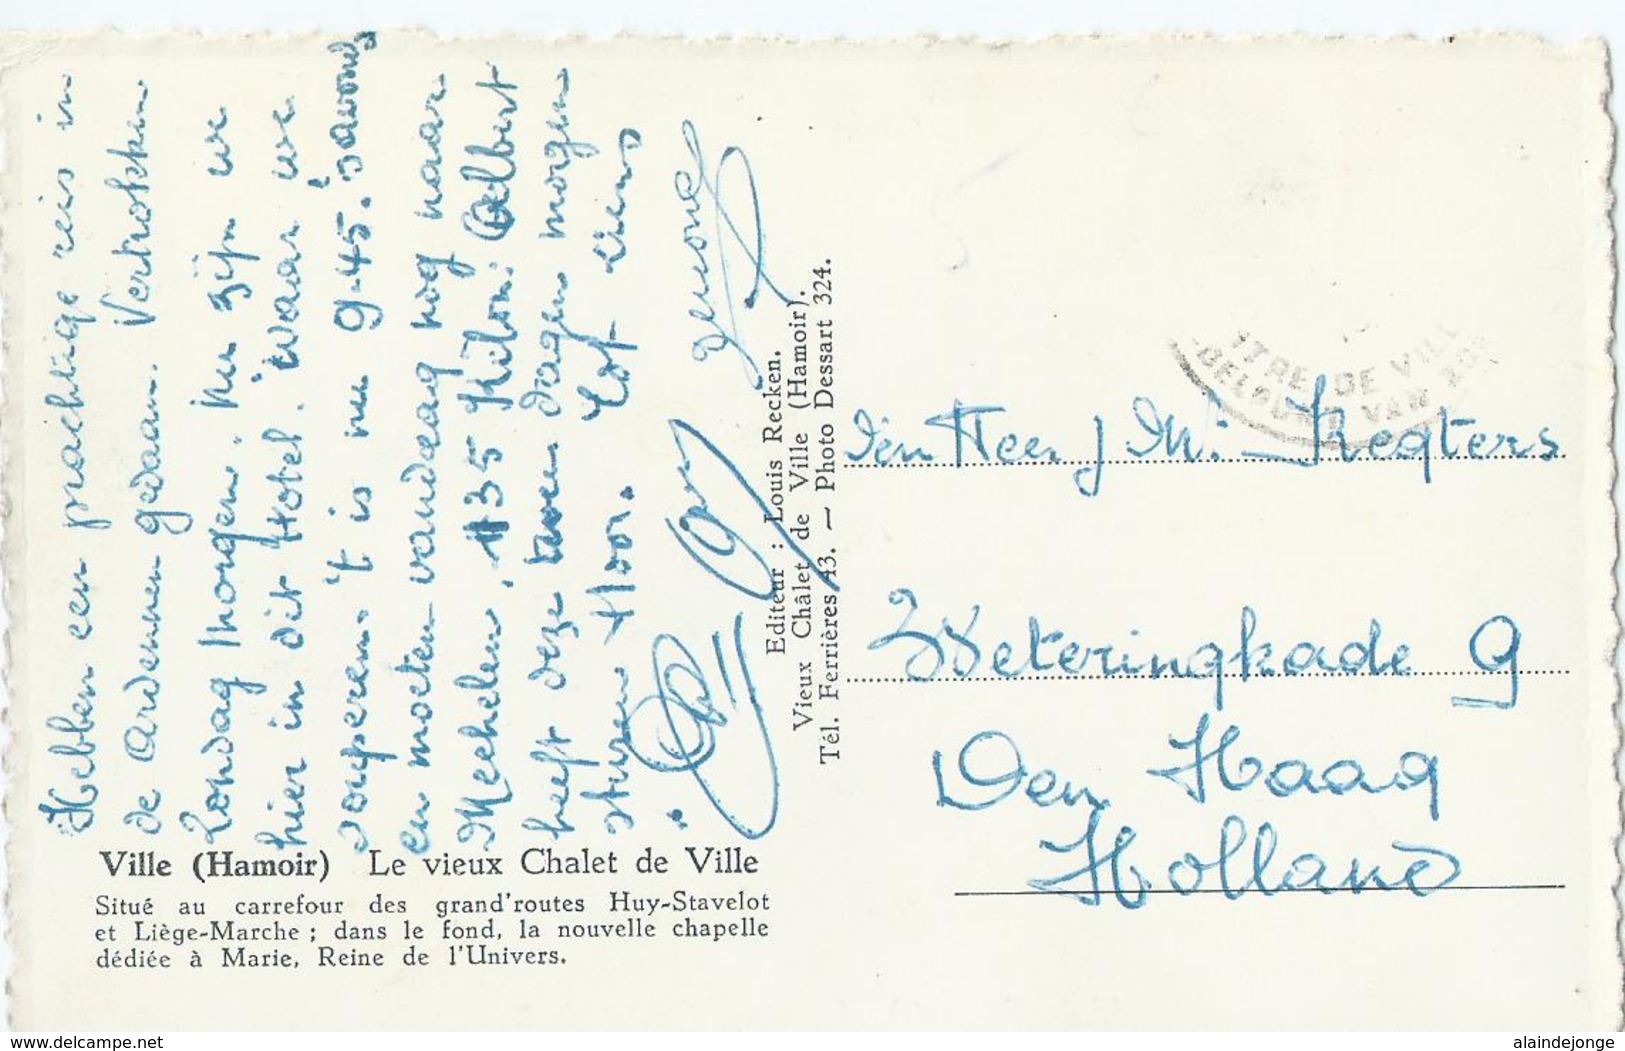 Hebben een prachtige reis in
de Ardennen gedaan. Vertrokken
Zondag morgen. Nu zijn we
hier in dit Hotel. Waar we
souperen. 't is nu 9.45. 's avonds
en moeten vandaag nog naar
Mechelen, 135 kilom: Albert
heeft deze dagen morgen
sturen Hoor. Tot ziens
Editeur : Louis Recken.
Vieux Châlet de Ville (Hamoir).
Tél. Ferrières 43. — Photo Dessart 324.
Ville (Hamoir) Le vieux Chalet de Ville
Situé au carrefour des grand'routes Huy-Stavelot
et Liège-Marche ; dans le fond, la nouvelle chapelle
dédiée à Marie, Reine de l'Univers.
TRE DE VILL
VAN
Den Heer J M. Kegters
Weteringkade 9
Den Haag
Holland
www.delcampe.net
alaindejonge